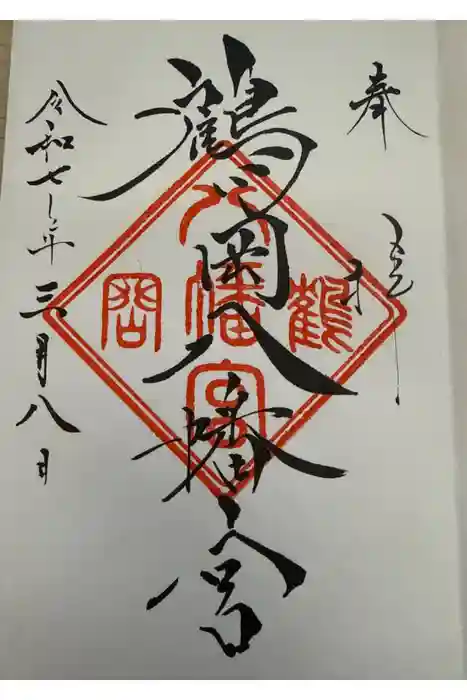 奉拝
鶴岡八幡宮
令和七年三月八日
鶴
八幡宮
岡